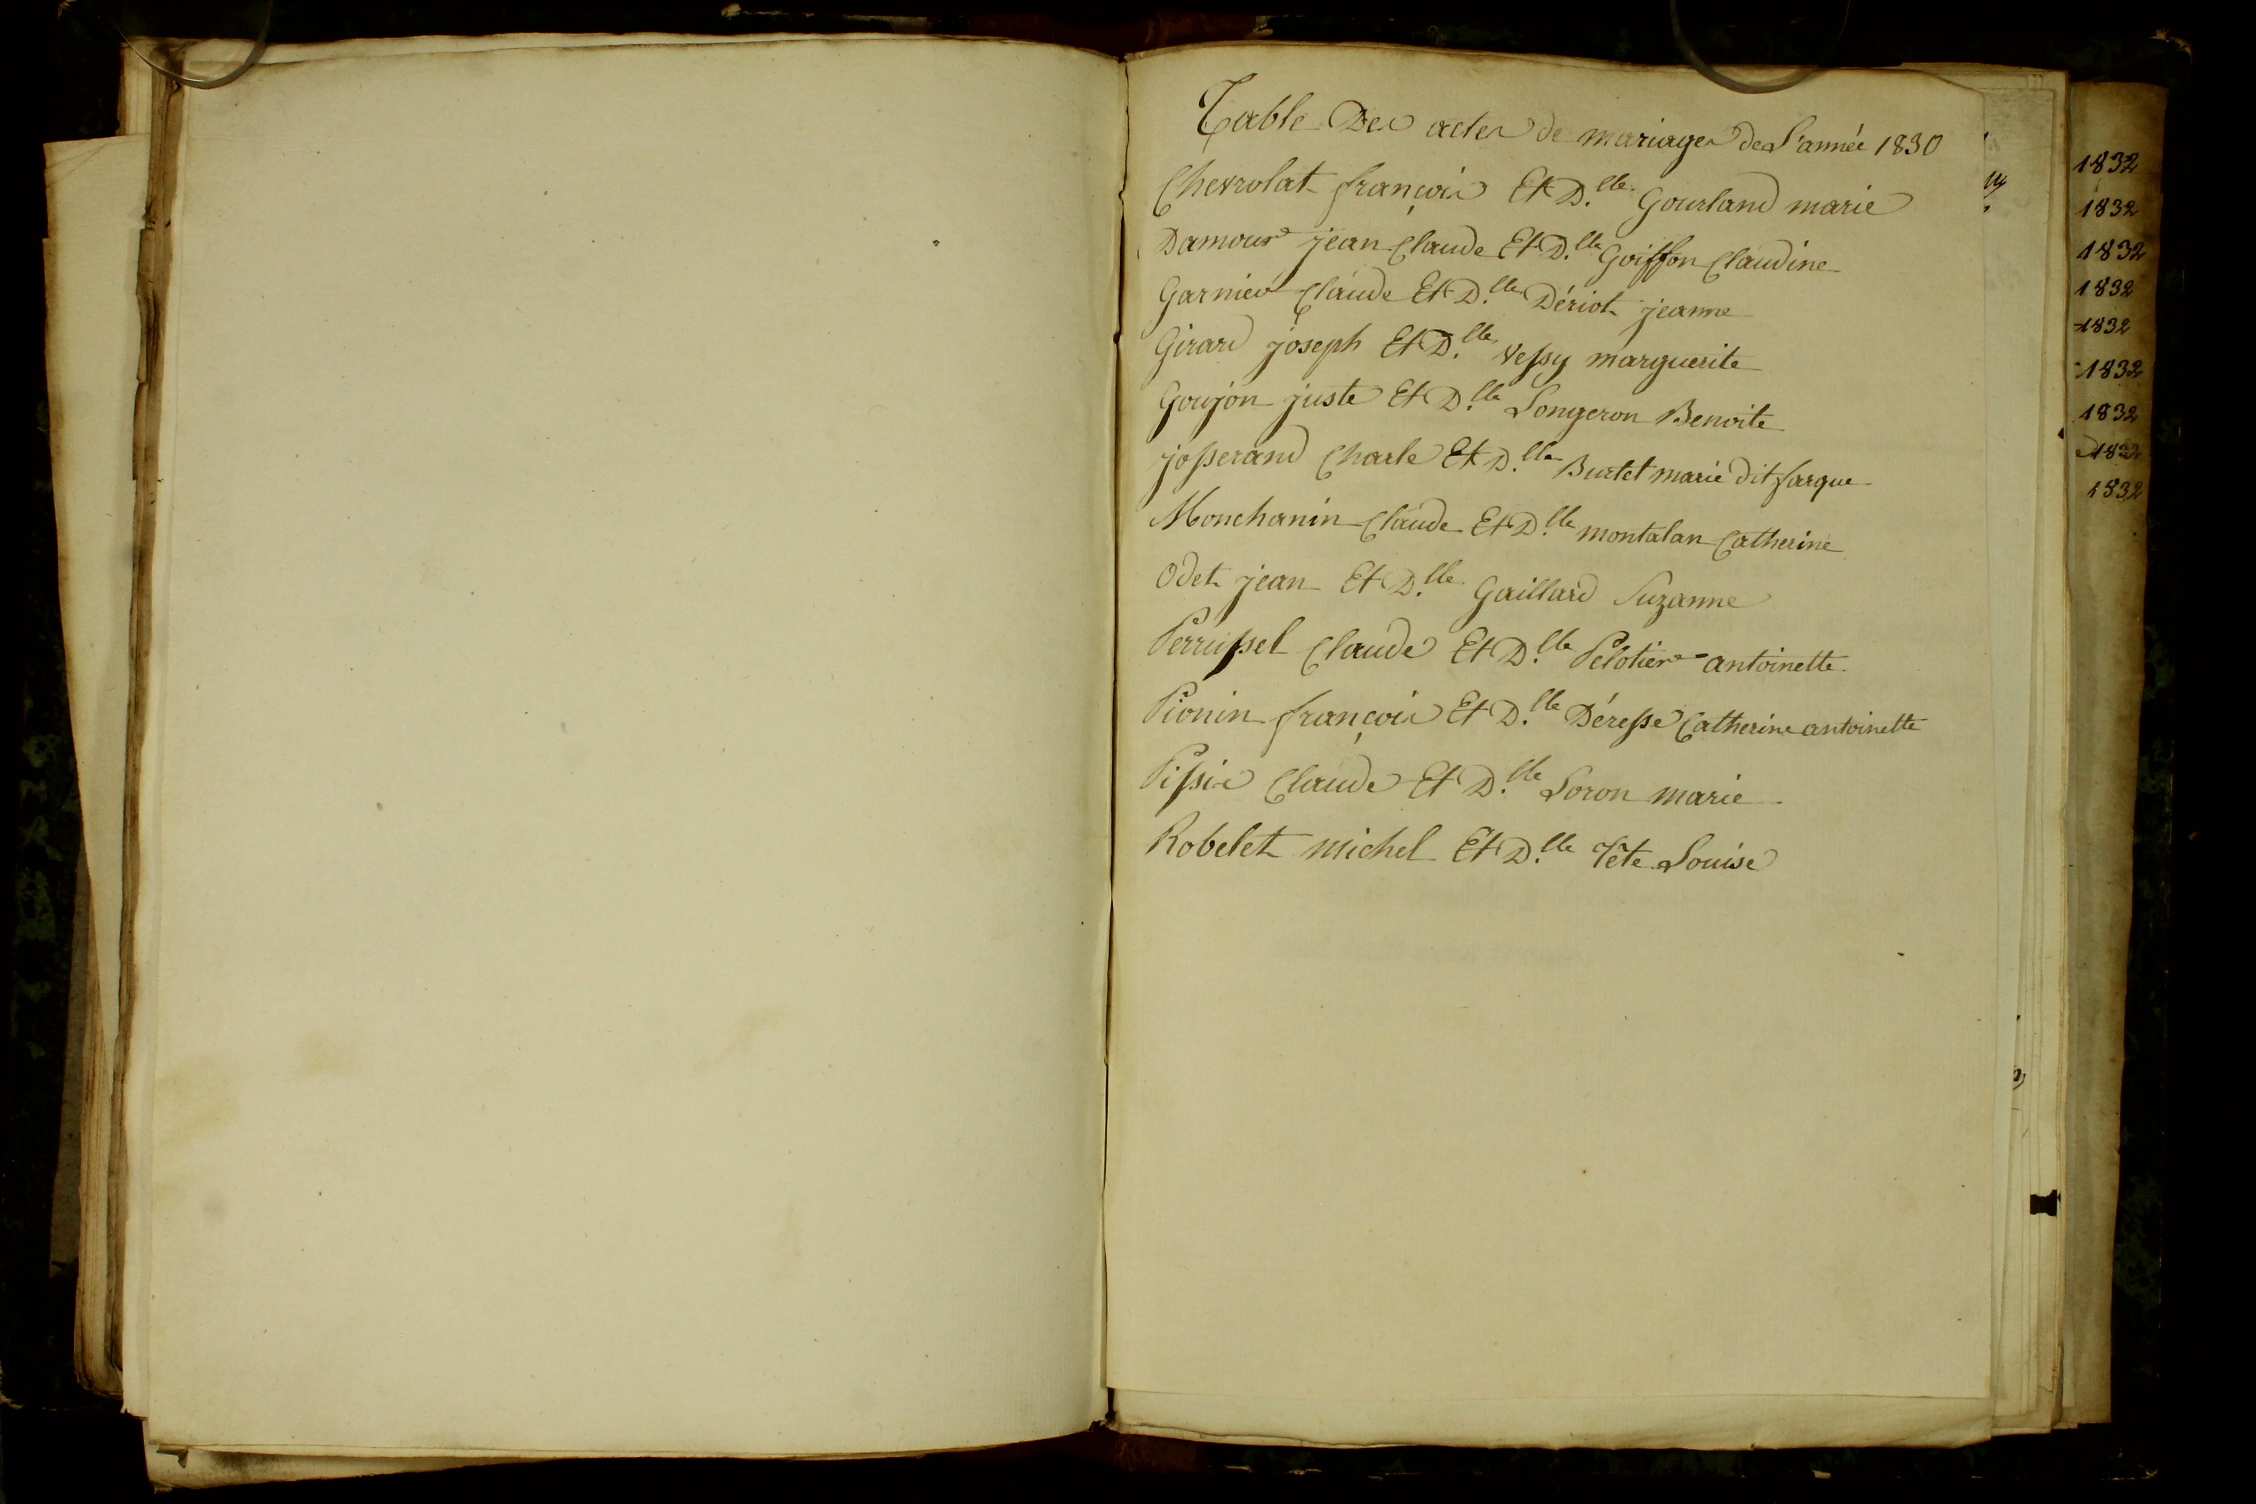 Table Des actes de mariages de L'année 1830
Chevrolat françois Et D.lle Gourland marie
Damour jean Claude Et D.lle Goiffon Claudine
Garnier Claude Et D.lle Dériot jeanne
Girard joseph Et D.lle Vessy marguerite
Goujon juste Et D.lle Longeron Benoite
josserand Charle Et D.lle Burtet marie dit fargue
Monchanin Claude Et D.lle montalan Catherine
Odet jean Et D.lle Gaillard Suzanne
Perrussel Claude Et D.lle Pelotier antoinette
Pionin françois Et D.lle Déresse Catherine antoinette
Pissie Claude Et D.lle Loron marie
Robelet michel Et D.lle Tête Louise
1832
1832
1832
1832
1832
1832
1832
1832
1832